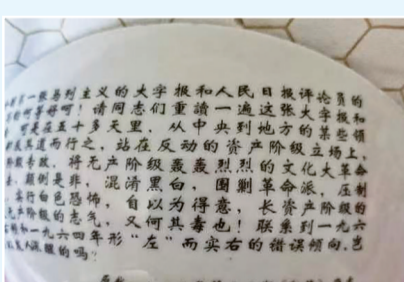 一张马列主义的大字报和人民日报评论员的
何等好呵！请同志们重讀一遍这张大字报和
可是在五十多天里，从中央到地方的某些领
道而行之，站在反动的资产阶级立场上，
专政，将无产阶级轰轰烈烈的文化大革命
颠倒是非，混淆黑白，围剿革命派，压制
实行白色恐怖，自以为得意，长资产阶级的
产阶级的志气，又何其毒也！联系到一九六
和一九六四年形“左”而实右的错误倾向，岂
醒的吗？